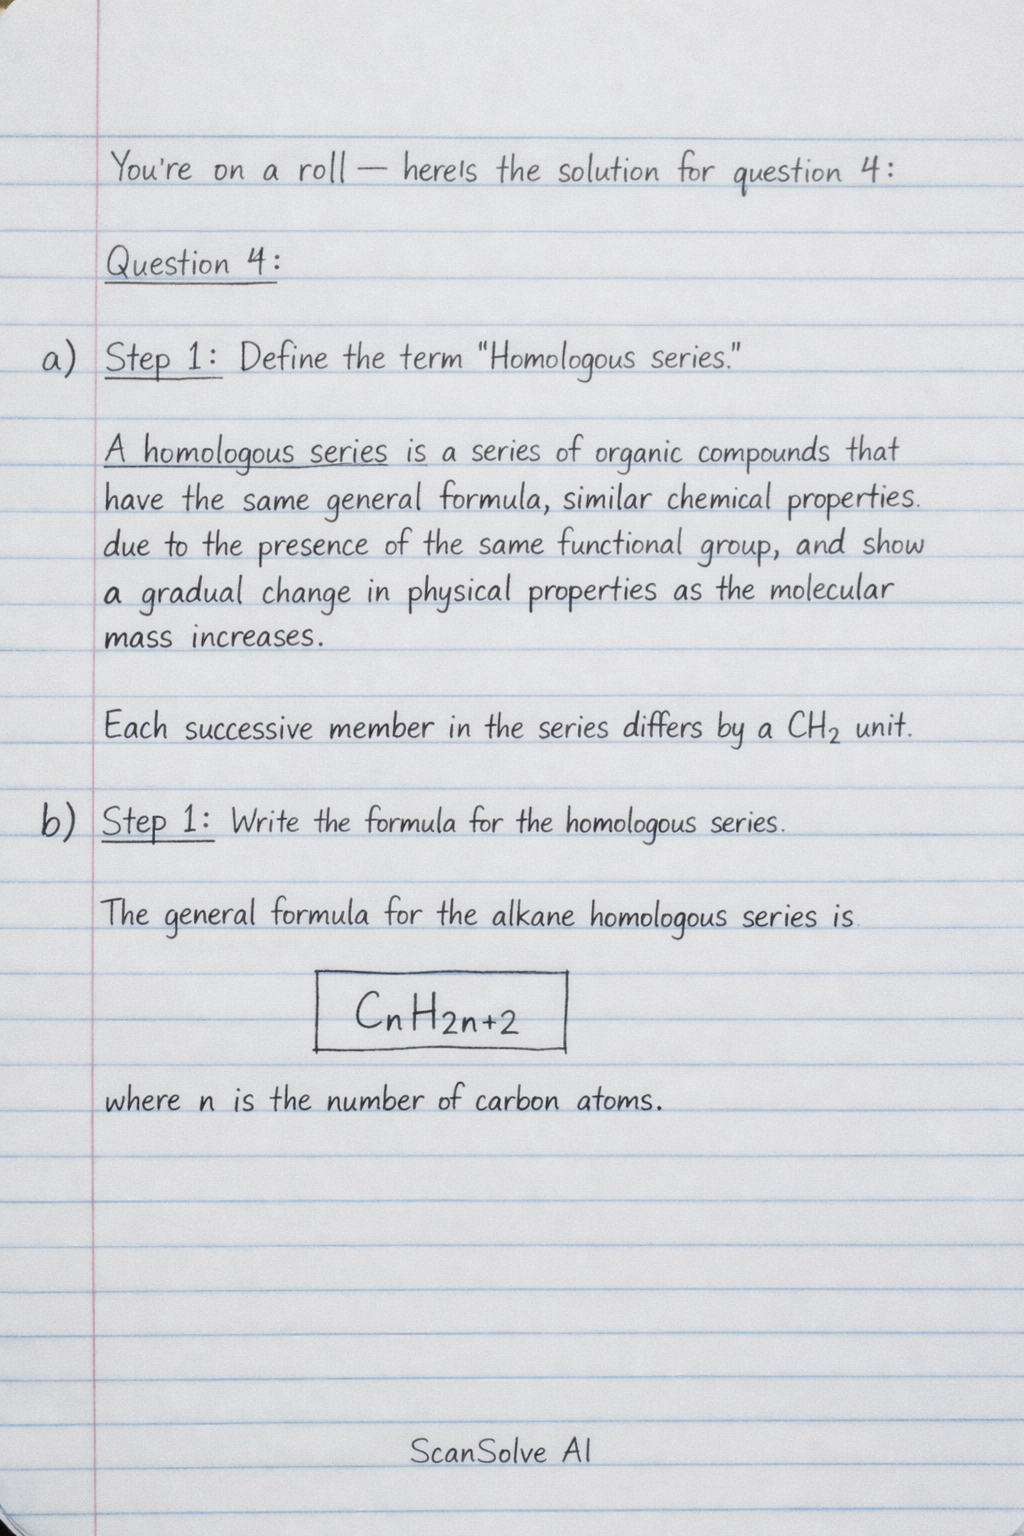 You're on a roll — here's the solution for question 4:
Question 4:
a) Step 1: Define the term "Homologous series."
A homologous series is a series of organic compounds that
have the same general formula, similar chemical properties.
due to the presence of the same functional group, and show
a gradual change in physical properties as the molecular
mass increases.
Each successive member in the series differs by a CH₂ unit.
b) Step 1: Write the formula for the homologous series.
The general formula for the alkane homologous series is.
CₙH₂ₙ₊₂
where n is the number of carbon atoms.
ScanSolve AI